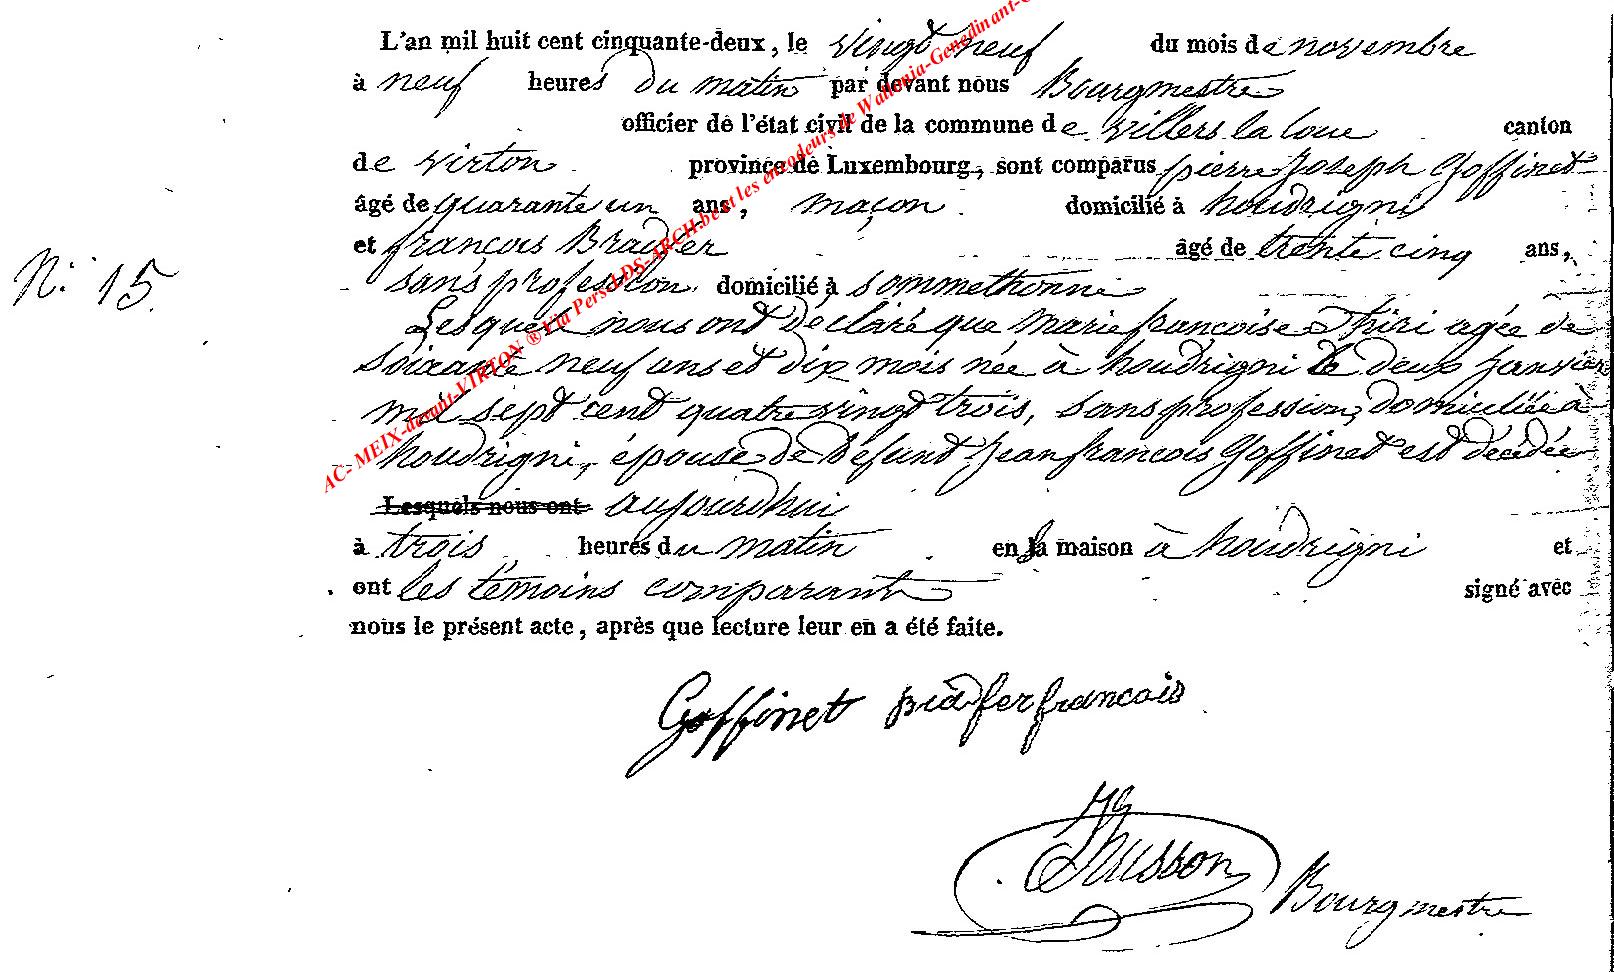 L'an mil huit cent cinquante-deux, le vingt neuf du mois de novembre
à neuf heures du matin par devant nous Bourgmestre
officier de l'état civil de la commune de villers la loue canton
de virton province de Luxembourg, sont comparus pierre Joseph Goffinet
âgé de quarante un ans, maçon domicilié à houdrigni
et françois Bradfer âgé de trente cinq ans,
N.° 15.
sans profession domicilié à sommethonne
Lesquels nous ont déclaré que Marie françoise Thiri agée de
soixante neuf ans et dix mois née à houdrigni le deux janvier
mil sept cent quatre vingt trois, sans profession, domiciliée à
houdrigni, épouse de Défunt Jean francois Goffinet est décédée
Lesquels nous ont aujourdhui
à trois heures du matin en la maison à houdrigni et
ont les témoins comparant signé avec
nous le présent acte, après que lecture leur en a été faite.
Goffinet Bradfer francois
Husson
Bourgmestre
AC- MEIX-devant-VIRTON ® Via Pers-LDS-ARCH.be et les encodeurs de Wallonia-Genedinant-